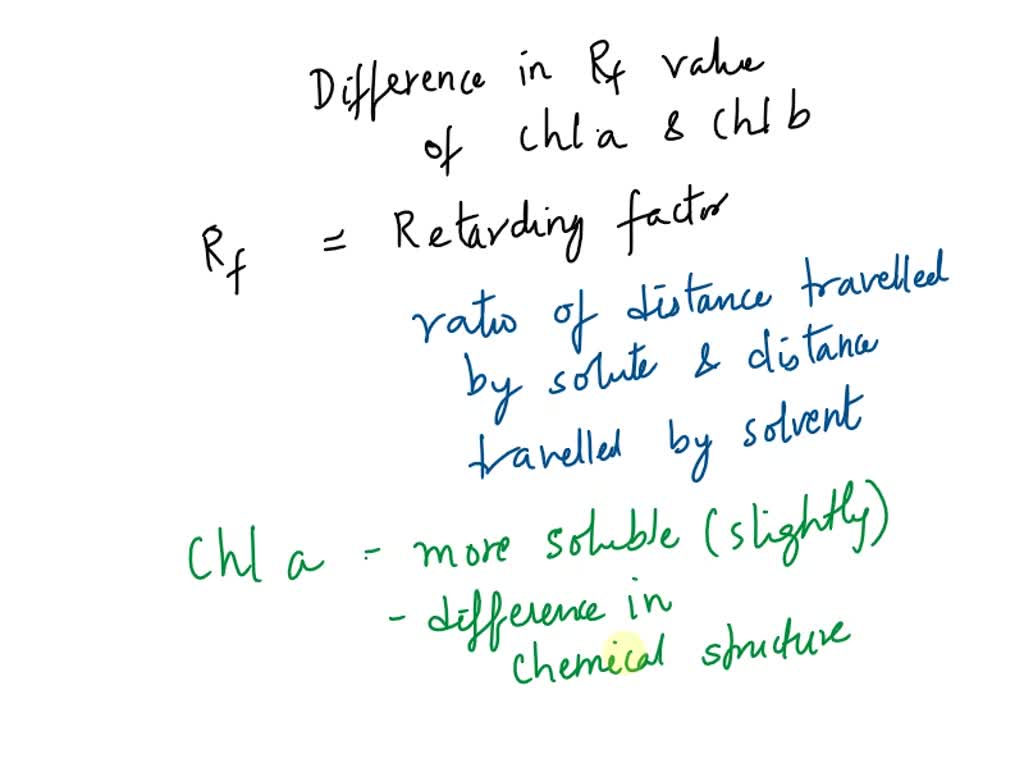 Difference in Rf value
of chl a & Chl b
Rf = Retarding factor
ratio of distance travelled
by solute & distance
travelled by solvent
Chl a - more soluble (slightly)
- difference in
chemical structure